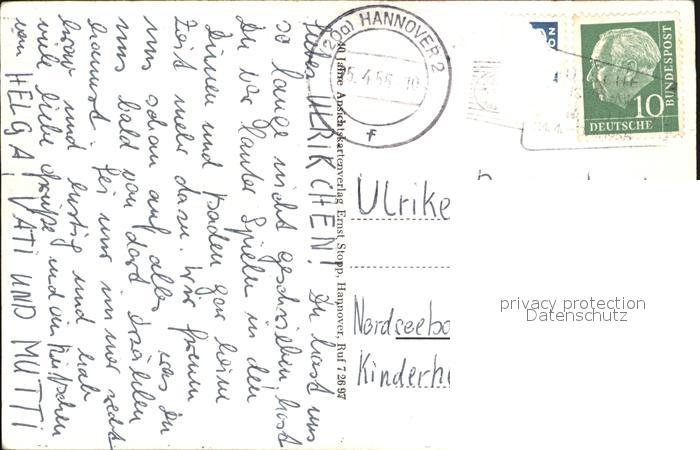 Liebes ULRIKCHEN! Du hast uns
so lange nicht geschrieben, hast
Du vor lauter Spielen in den
Dünen und Baden gar keine
Zeit mehr dazu. Wir freuen
uns schon auf alles was Du
uns bald von dort erzählen
kannst. Sei nur immer recht
brav und lustig und hab
viele liebe Grüße und ein Küßchen
von HELGA, VATI UND MUTTI
40 Jahre Ansichtskartenverlag Ernst Stopp, Hannover, Ruf 7 26 97
(20a) HANNOVER 2
5.4.55
DEUTSCHE
BUNDESPOST
10
Ulrike
Nordseeba
Kinderh
privacy protection
Datenschutz